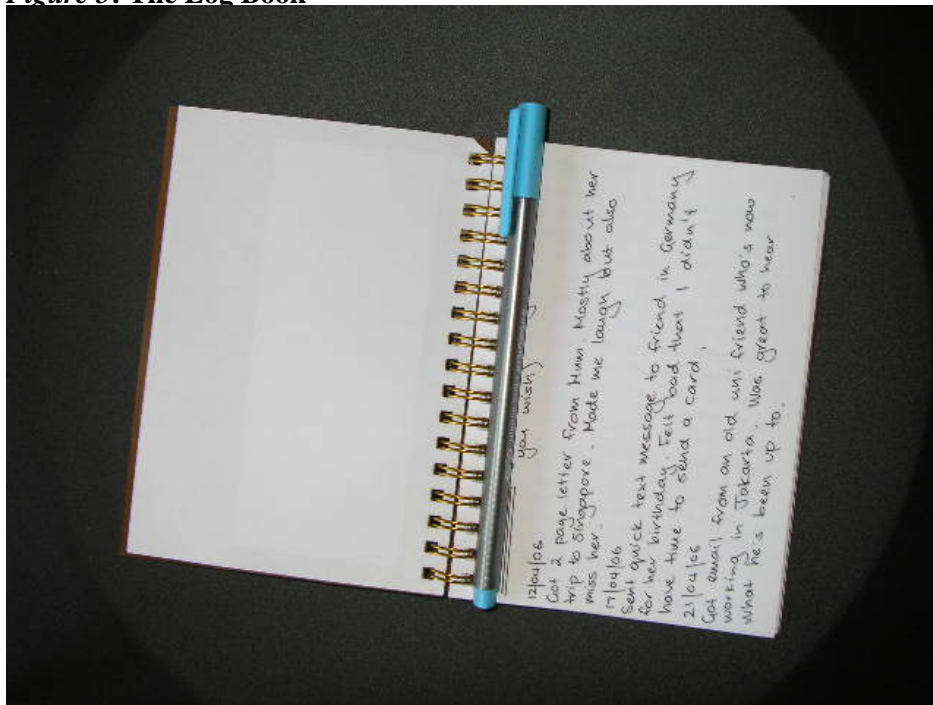 Figure 5: The Log Book
you wish)
12/04/06
Got 2 page letter from Mum. Mostly about her
trip to Singapore. Made me laugh but also
miss her.
17/04/06
Sent quick text message to friend in Germany
for her birthday. Felt bad that I didn't
have time to send a card.
21/04/06
Got email from an old uni friend who's now
working in Jakarta. Was great to hear
what he's been up to.